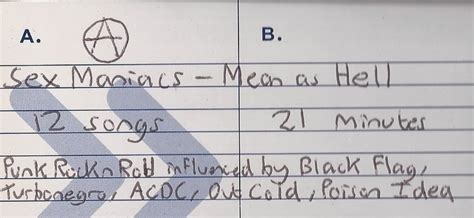 A. Ⓐ B.
Sex Maniacs - Mean as Hell
12 songs 21 minutes
Punk Rock n Roll influenced by Black Flag,
Turbonegro, ACDC, Out Cold, Poison Idea